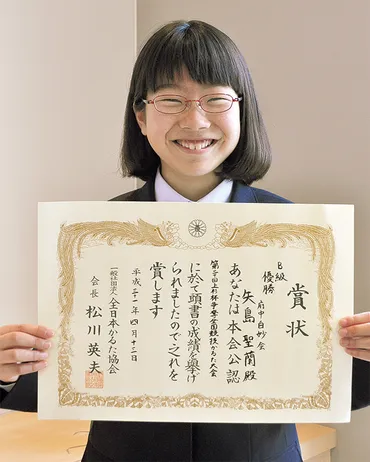 賞状
B級
優勝
府中白妙会
矢島 聖蘭 殿
あなたは本会公認
争奪全国競技かるた大会
に於て頭書の成績を挙げ
られましたのでこれを
賞します
平成 年 四月 日
一般社団法人 全日本かるた協会
会長 松川英夫